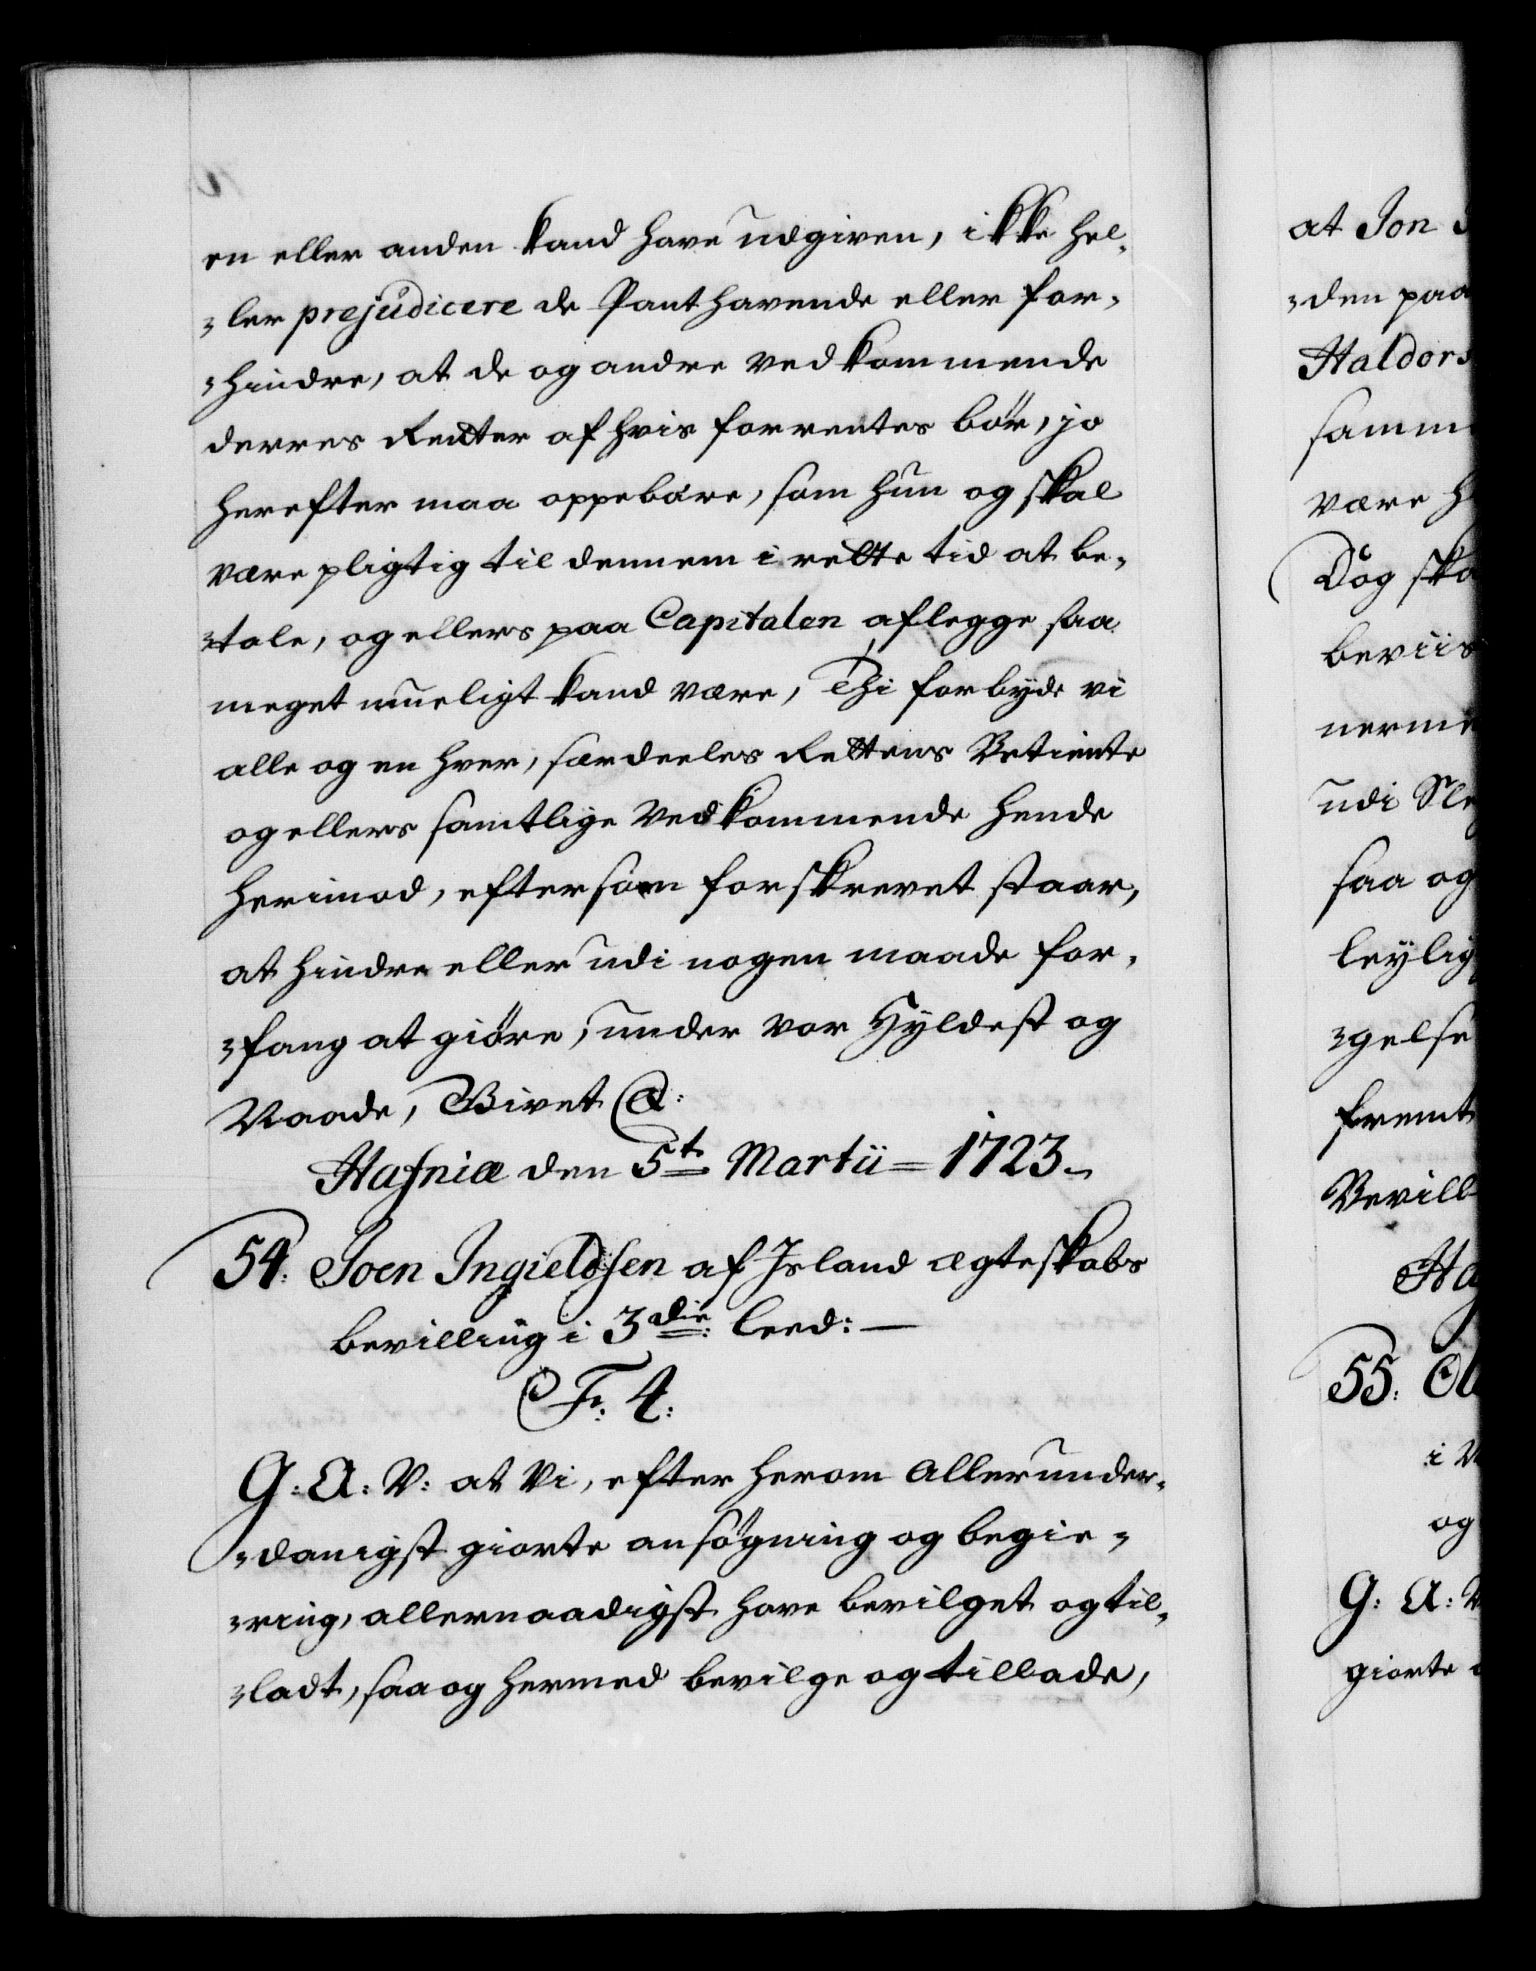 en eller anden kand have udgiven, ikke hel-
-ler prejudicere de Panthavende eller for-
-hindre, at de og andre vedkommende
derres Rentter af hvis forrentes bör, jo
herefter maa oppebære, som hun og skal
være pligtig til dennem i rette tid at be-
-tale, og ellers paa Capitalen aflegge saa
meget mueligt kand være, Thi forbyde vi
alle og en hver, særdeeles Rettens Betiente
og ellers samtlige Vedkommende hende
herimod, eftersom forskrevet staar,
at hindre eller udi nogen maade for-
-fang at giöre, under vor Hyldest og
Naade, Givet &:
Hafniæ den 5t Martii = 1723
54: Joen Ingieldsen af Island ægteskabs
bevilling i 3die: leed: —
Fr. 4:
G: A: V: at Vi, efter herom Allerunder-
-danigst giorte ansögning og begie-
-ring, allernaadigst have bevilget og til-
-ladt, saa og hermed bevilge og tillade,
at Jon
-den paa
Haldors
samm
være
Dog ska
beviis
nerme
udi
saa og
leylig
-gelse
fremt
Bevill
55:
og
G: A:
giorte